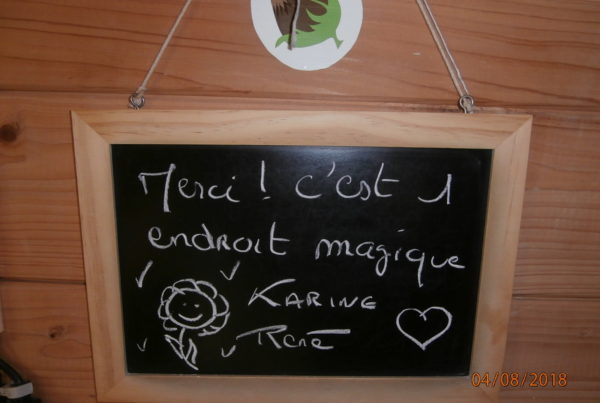 Merci ! c'est 1
endroit magique
KARINE
René
04/08/2018